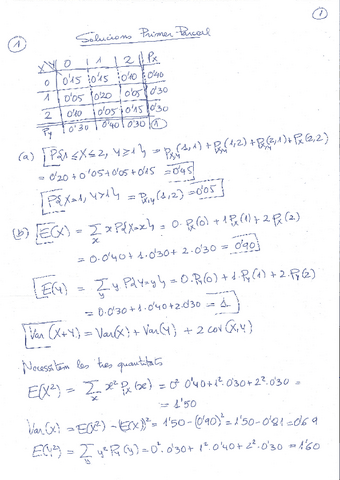 1
1
Solucions Primer Parcial
X Y 0 1 2 Px
0 0'15 0'15 0'10 0'40
1 0'05 0'20 0'05 0'30
2 0'10 0'05 0'15 0'30
Py 0'30 0'40 0'30 1
(a) P{1≤X≤2, Y≥1} = Px,y(1,1) + Px,y(1,2) + Px,y(2,1) + Px,y(2,2)
= 0'20 + 0'05 + 0'05 + 0'15 = 0'45
P{X=1, Y>1} = Px,y(1,2) = 0'05
(b) E(X) = ∑x x P{X=x} = 0·Px(0) + 1·Px(1) + 2·Px(2)
= 0·0'40 + 1·0'30 + 2·0'30 = 0'90
E(Y) = ∑y y P{Y=y} = 0·Py(0) + 1·Py(1) + 2·Py(2)
= 0·0'30 + 1·0'40 + 2·0'30 = 1
Var (X+Y) = Var(X) + Var(Y) + 2 cov(X,Y)
Necessitem les tres quantitats
E(X²) = ∑x x² Px(x) = 0²·0'40 + 1²·0'30 + 2²·0'30 =
= 1'50
Var(X) = E(X²) - (E(X))² = 1'50 - (0'90)² = 1'50 - 0'81 = 0'69
E(Y²) = ∑y y² Py(y) = 0²·0'30 + 1²·0'40 + 2²·0'30 = 1'60